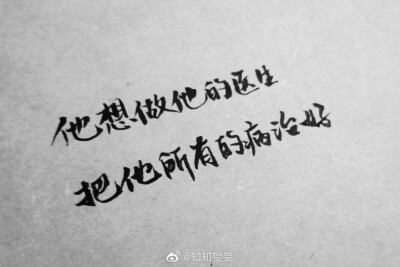 他想做他的医生
把他所有的病治好
@知知贺贺